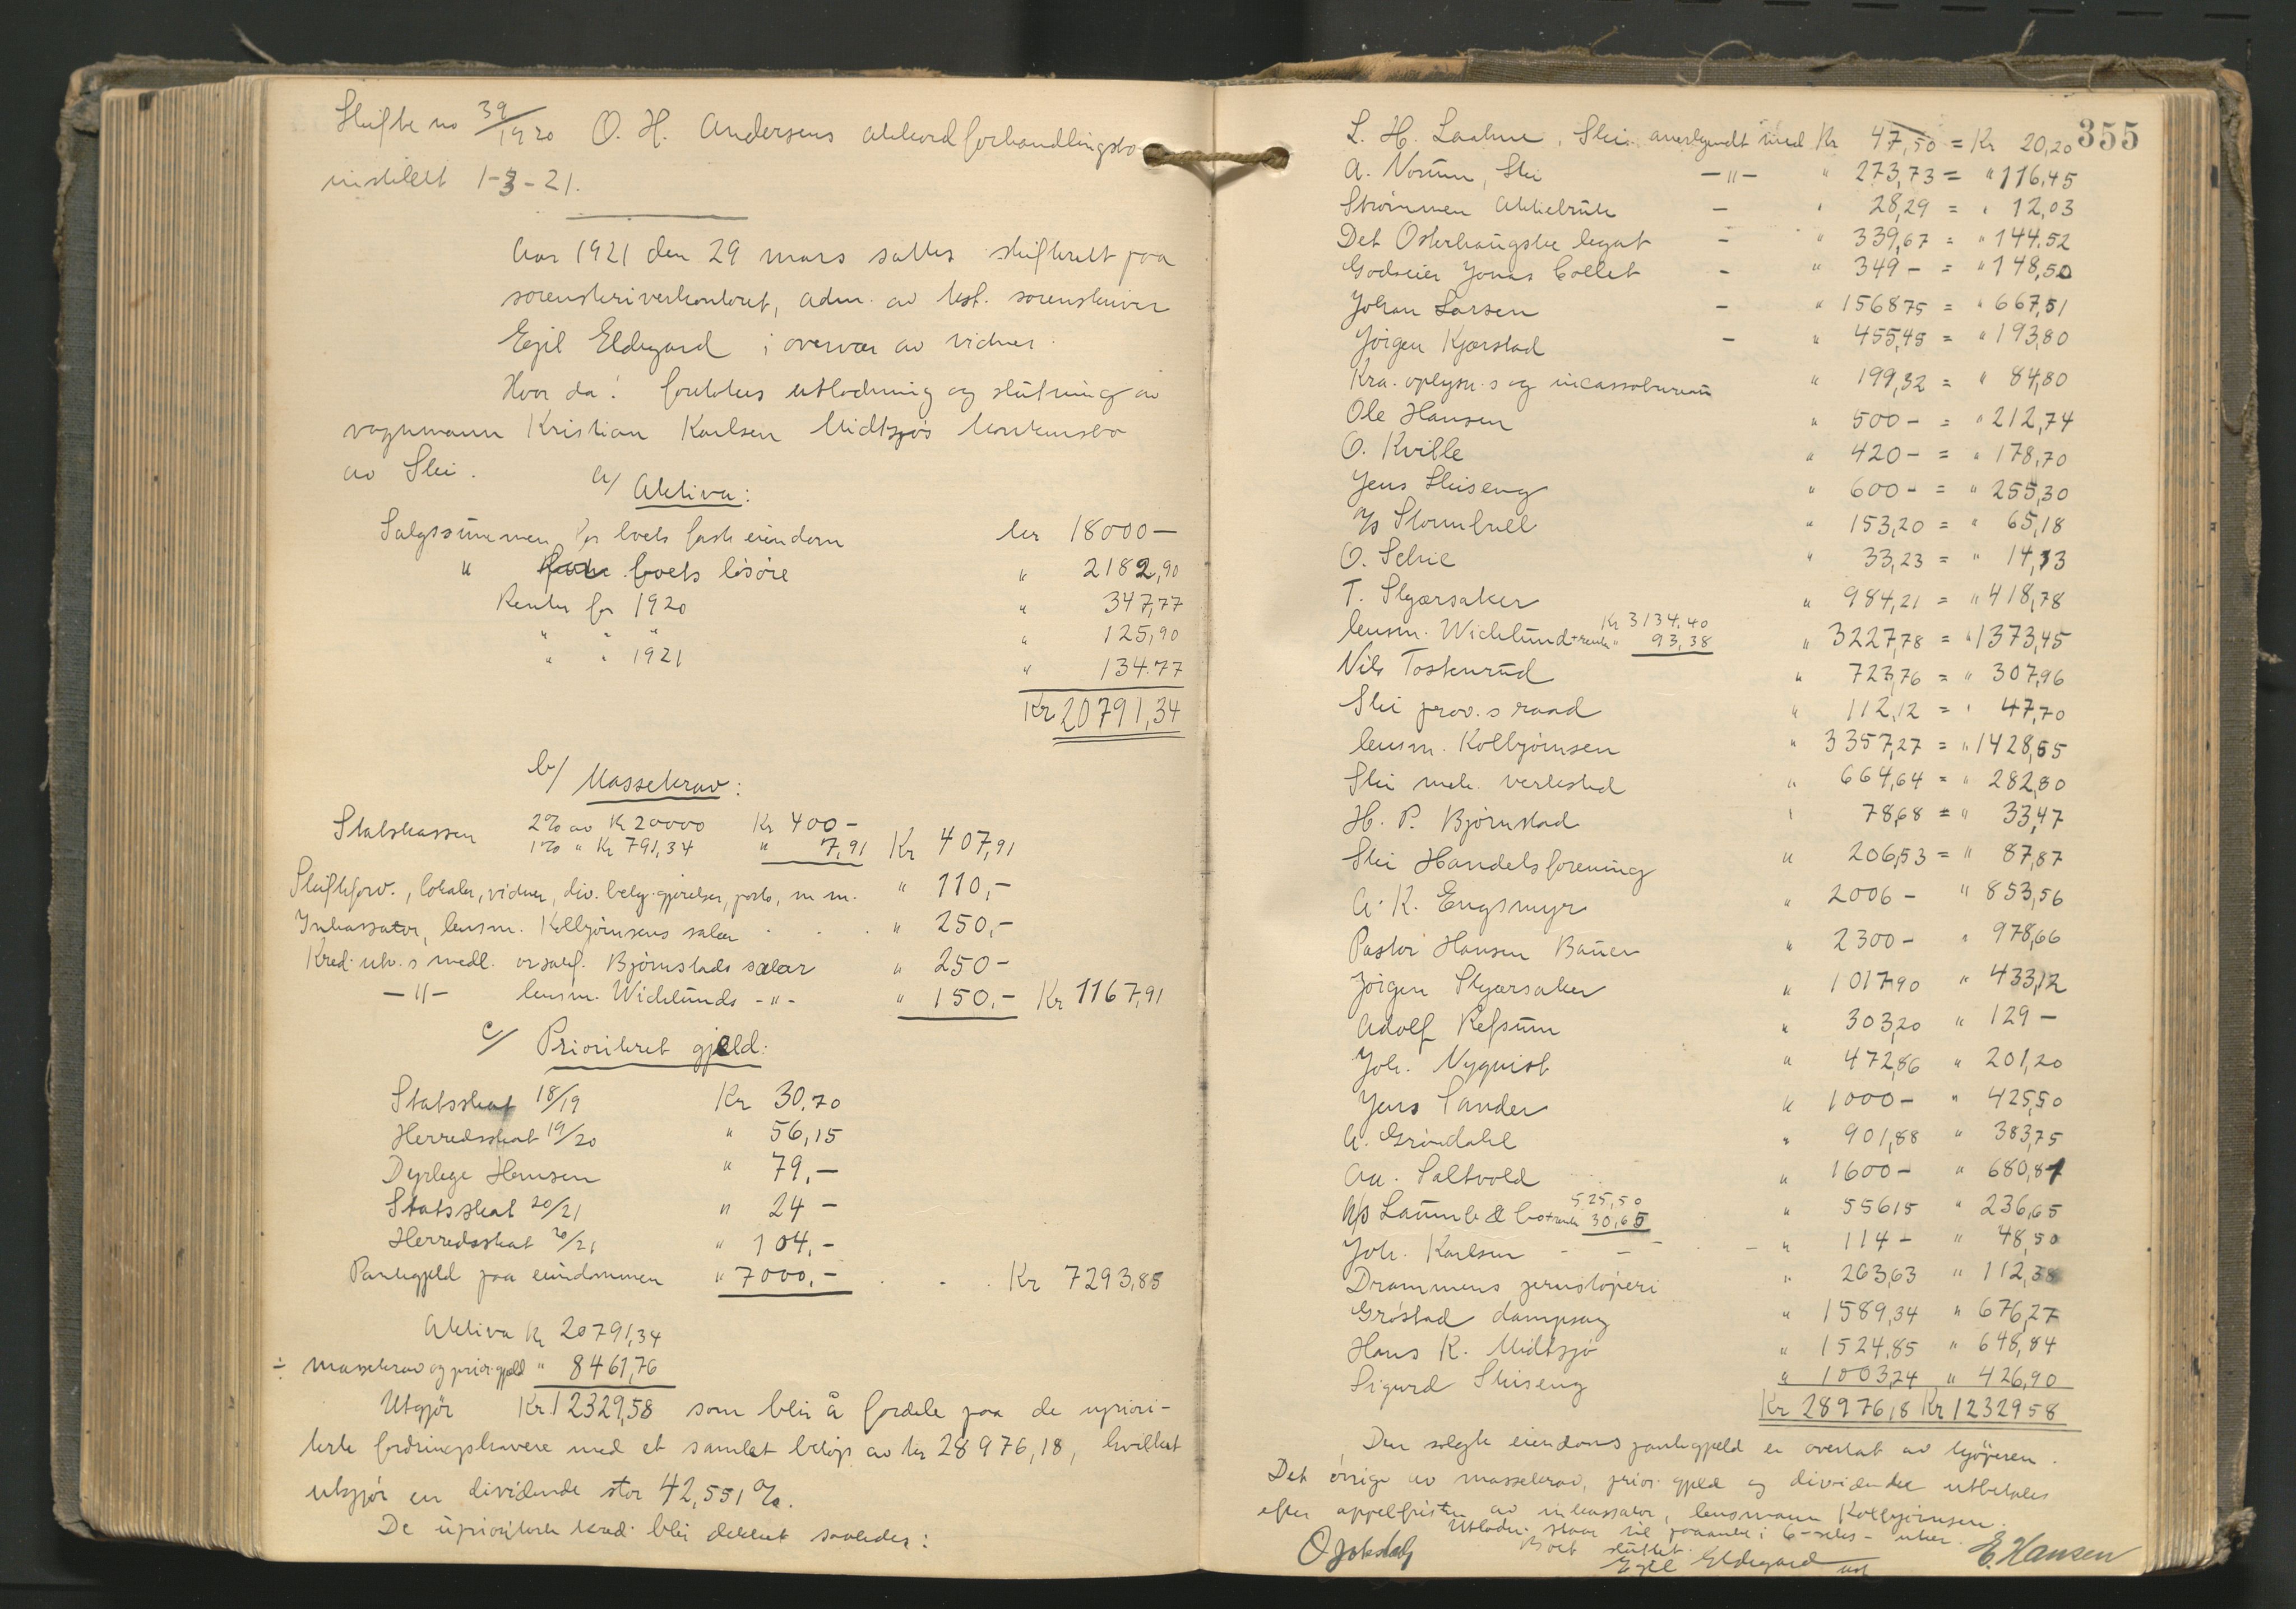 Skifte no 39/1920 O. H. Andersens akkordforhandlingsbo
instillet 1-3-21.
Aar 1921 den 29 mars sattes skifterett paa
sorenskriverkontoret, adm. av kst. sorenskriver
Egil Eldegard i overvær av vidner.
Hvor da: foretokes utlodning og slutning av
vognmann Kristian Karlsen Midtsjøs konkursbo
av Ski.
a/ Aktiva:
Salgssummen for boets faste eiendom kr 18000 —
" boets løsøre " 2182,90
Renter for 1920 " 347,77
" " " " 125,90
" " 1921 " 134.77
Kr 20791,34
b/ Massekrav:
Statskassen 2% av Kr 20000 Kr 400 -
1% " Kr 791,34 " 7,91 Kr 407,91
Skifteforv., lokaler, vidner, div. bekj.gjørelser, porto, m m. " 110,-
Inkassator, lensm. Kolbjørnsens salær . . . " 250,-
Kred.utv.s medl. Bjørnstads salær " 250 -
—"— lensm. Wicklunds -"- " 150.- Kr 1167,91
c/ Prioritert gjæld:
Statsskat 18/19 Kr 30.70
Herredsskat 19/20 " 56,15
Dyrlege Hansen " 79.—
Statsskat 20/21 " 24 -
Herredsskat 20/21 " 104.-
Pantegjeld paa eiendommen " 7000.- . - . Kr 7293,85
Aktiva Kr 20791,34
÷ massekrav og prior. gjeld " 8461,76
Utgjør Kr. 12329,58 som blir å fordele paa de upriori-
terte fordringshavere med et samlet beløp av kr 28976,18, hvilket
utgjør en dividende stor 42,551 %.
De uprioriterte kred. blir dekket saaledes:
355
L. H. Laahne, Ski anerkjendt med Kr 47,50 = Kr 20,20
A. Norum, Ski —"— " 273,73 = " 116,45
Strømmen Aktiebruk — " 28,29 = " 12,03
Det Osterhaugske legat - " 339,67 = " 144.52
Godseier Jonas Collet - " 349 - = " 148,50
Johan Larsen - " 156875 = " 667,51
Jørgen Kjærstad - " 455,45 = " 193,80
Kra. oplysn.s og incassobureau " 199,32 = " 84,80
Ole Hansen " 500 - = " 212,74
O. Kville " 420 - = " 178,70
Jens Skiseng " 600 - = " 255,30
A/s Stormbull " 153,20 = " 65,18
O. Schie " 33,23 = " 14,13
T. Skjærsaker " 984,21 = " 418,78
lensm. Wicklund + renter Kr 3134.40 " 93,38 " 3227,78 = " 1373,45
Nils Tostenrud " 723,76 = " 307,96
Ski prov.s raad " 112,12 = " 47,70
lensm. Kolbjørnsen " 3357,27 = " 1428,55
Ski mek. verksted " 664,64 = " 282,80
H. P. Bjørnstad " 78,68 = " 33,47
Ski Handelsforening " 206,53 = " 87,87
A. K. Engsmyr " 2006 - " 853,56
Pastor Hansen Bauer " 2300 - " 978,66
Jørgen Skjærsaker " 1017,90 " 433,12
Adolf Refsum " 303,20 " 129 -
Joh. Nyquist " 472,86 " 201,20
Jens Sander " 1000 - " 425,50
A. Grøndahl " 901,88 " 383,75
Aa. Saltvold " 1600 - " 680,81
A/s Laumb & Co + renter 525,50 30,65 " 55615 " 236,65
Joh. Karlsen - - - " 114 - " 48,50
Drammens jernstøperi " 263,63 " 112,38
Grøstad dampsag " 1589,34 " 676,27
Hans K. Midtsjø " 1524,85 " 648,84
Sigurd Skiseng " 1003,24 " 426,90
Kr 28976,18 Kr 1232958
Den solgte eiendoms pantegjeld er overtat av kjøperen.
Det øvrige av massekrav, prior. gjeld og dividende utbetales
efter appelfristen av inkassator, lensmann Kolbjørnsen.
Utlodn. staar til paaanke i 6-seks- uker.
Boet sluttet.
Egil Eldegard
E. Hansen